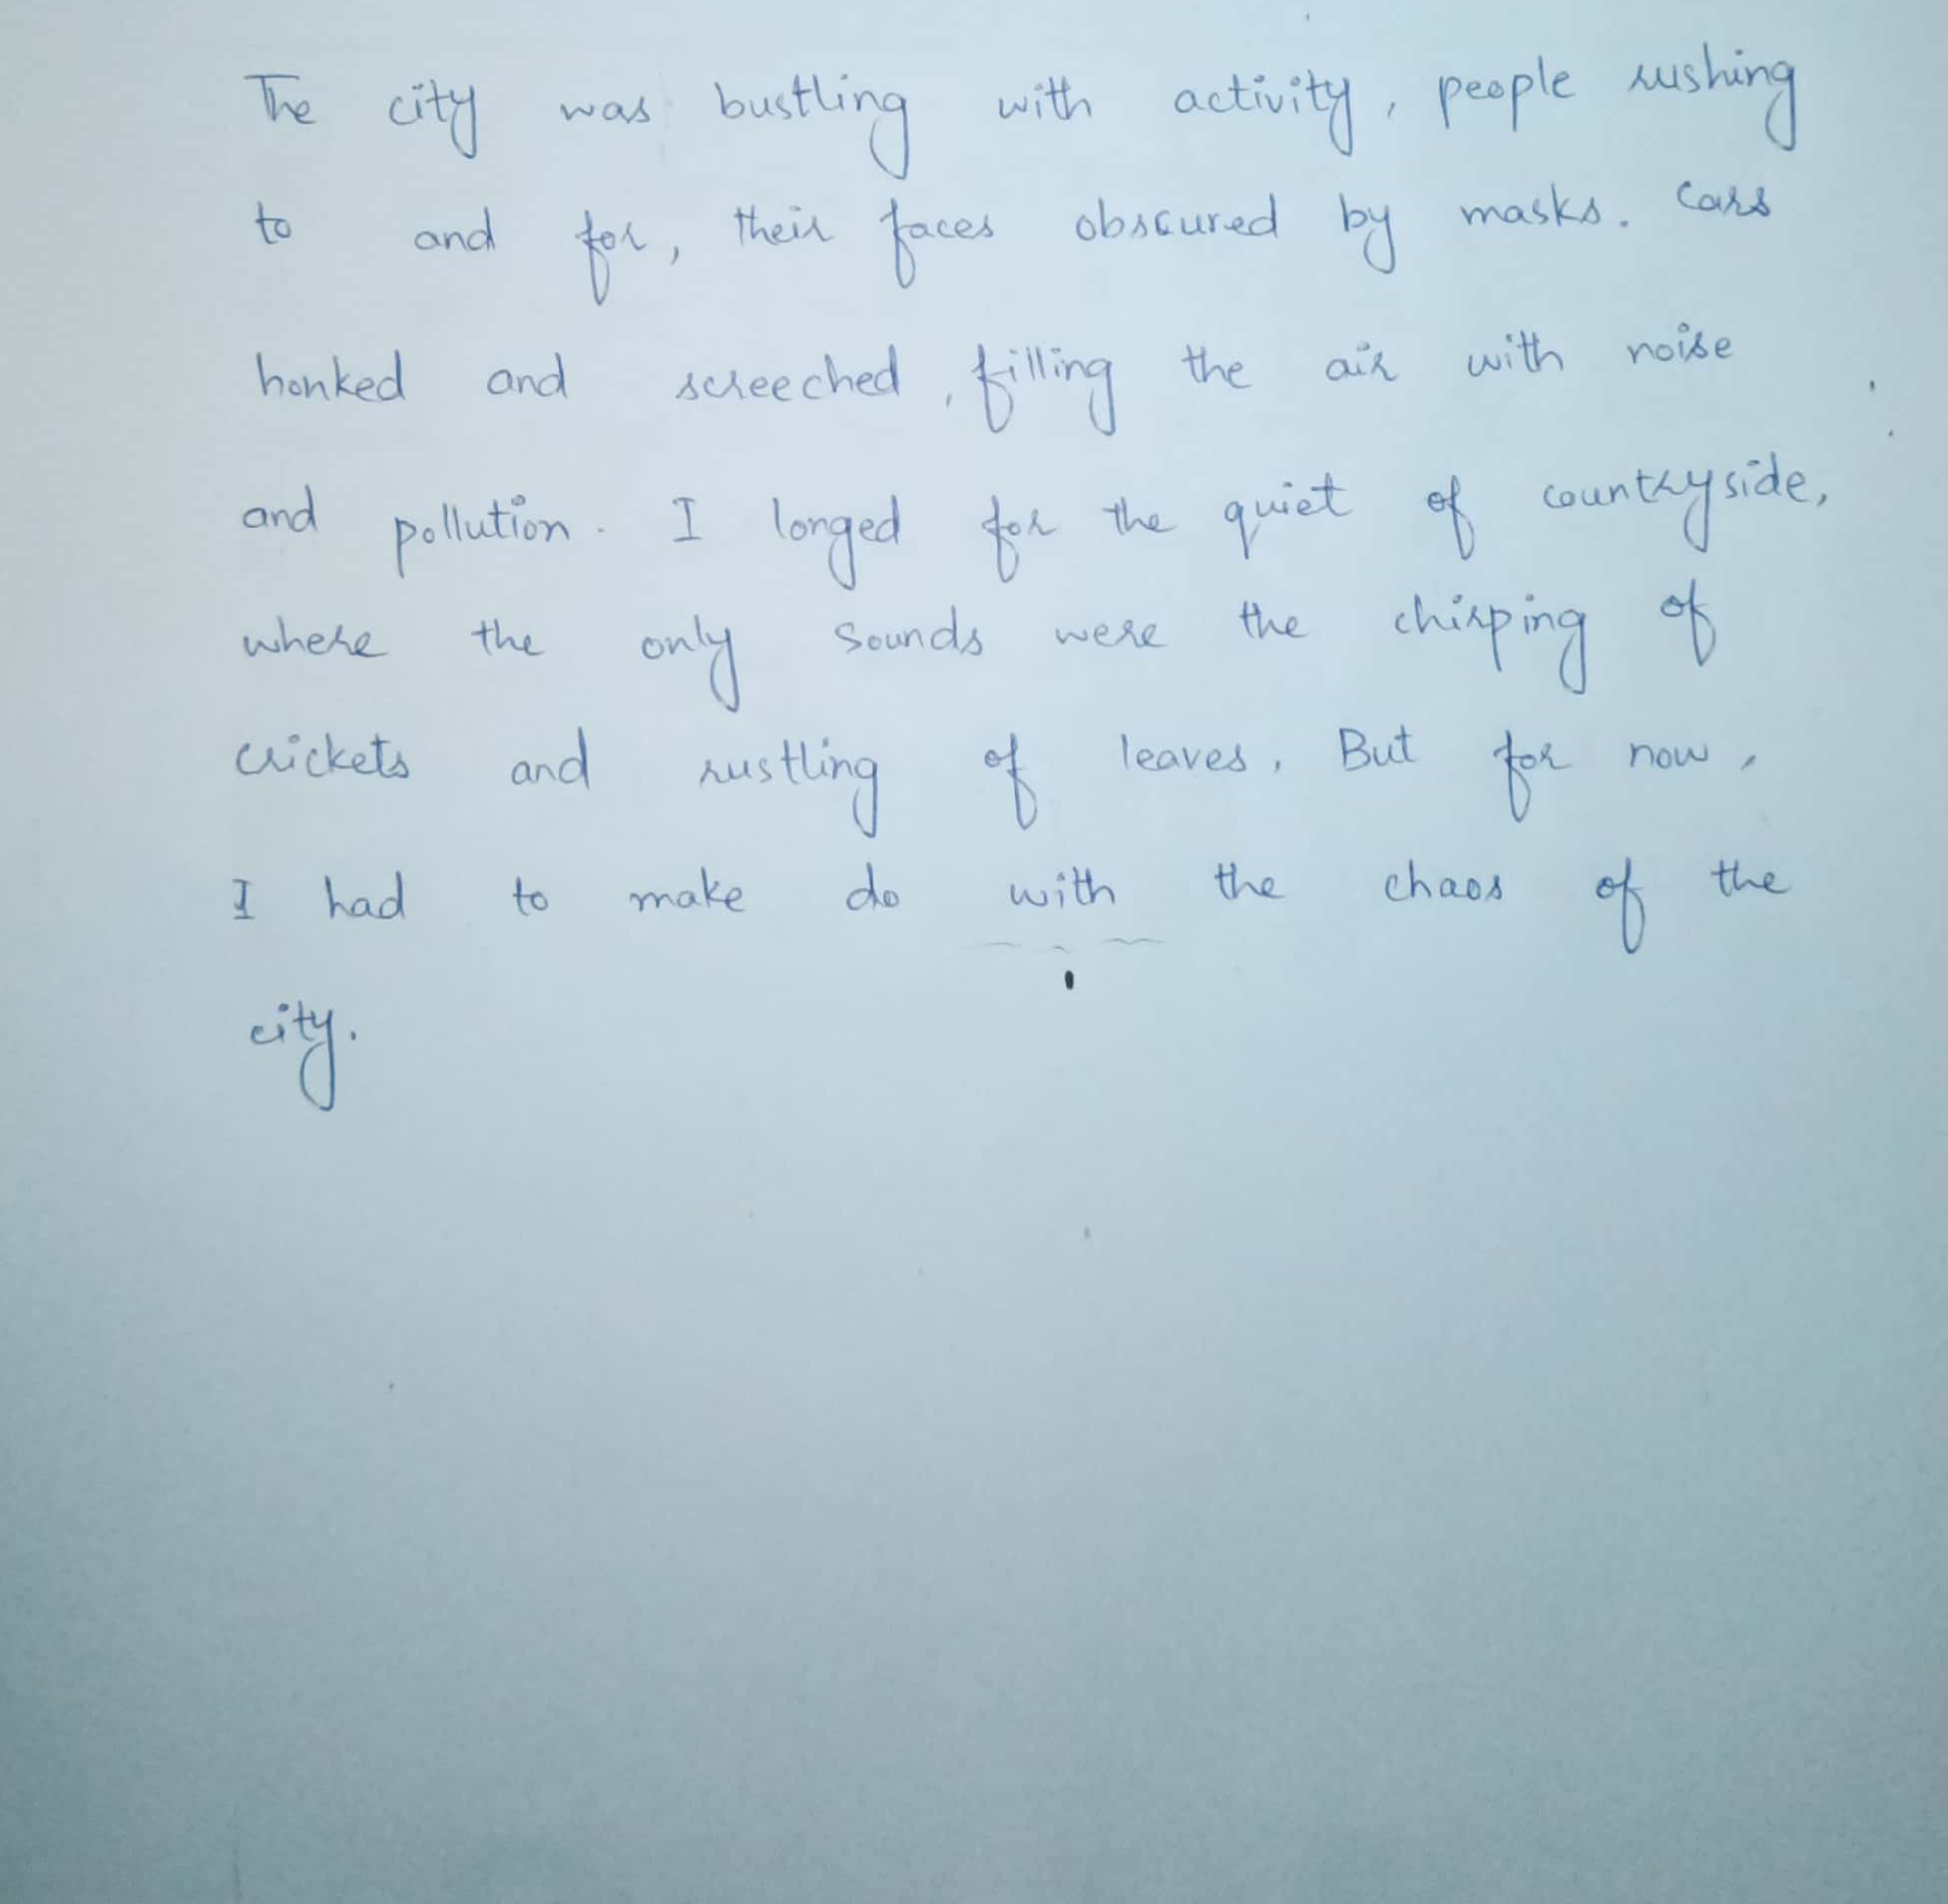 The city was bustling with activity, people rushing
to and for, their faces obscured by masks. Cars
honked and screeched, filling the air with noise
and pollution. I longed for the quiet of countryside,
where the only sounds were the chirping of
crickets and rustling of leaves, But for now,
I had to make do with the chaos of the
city.